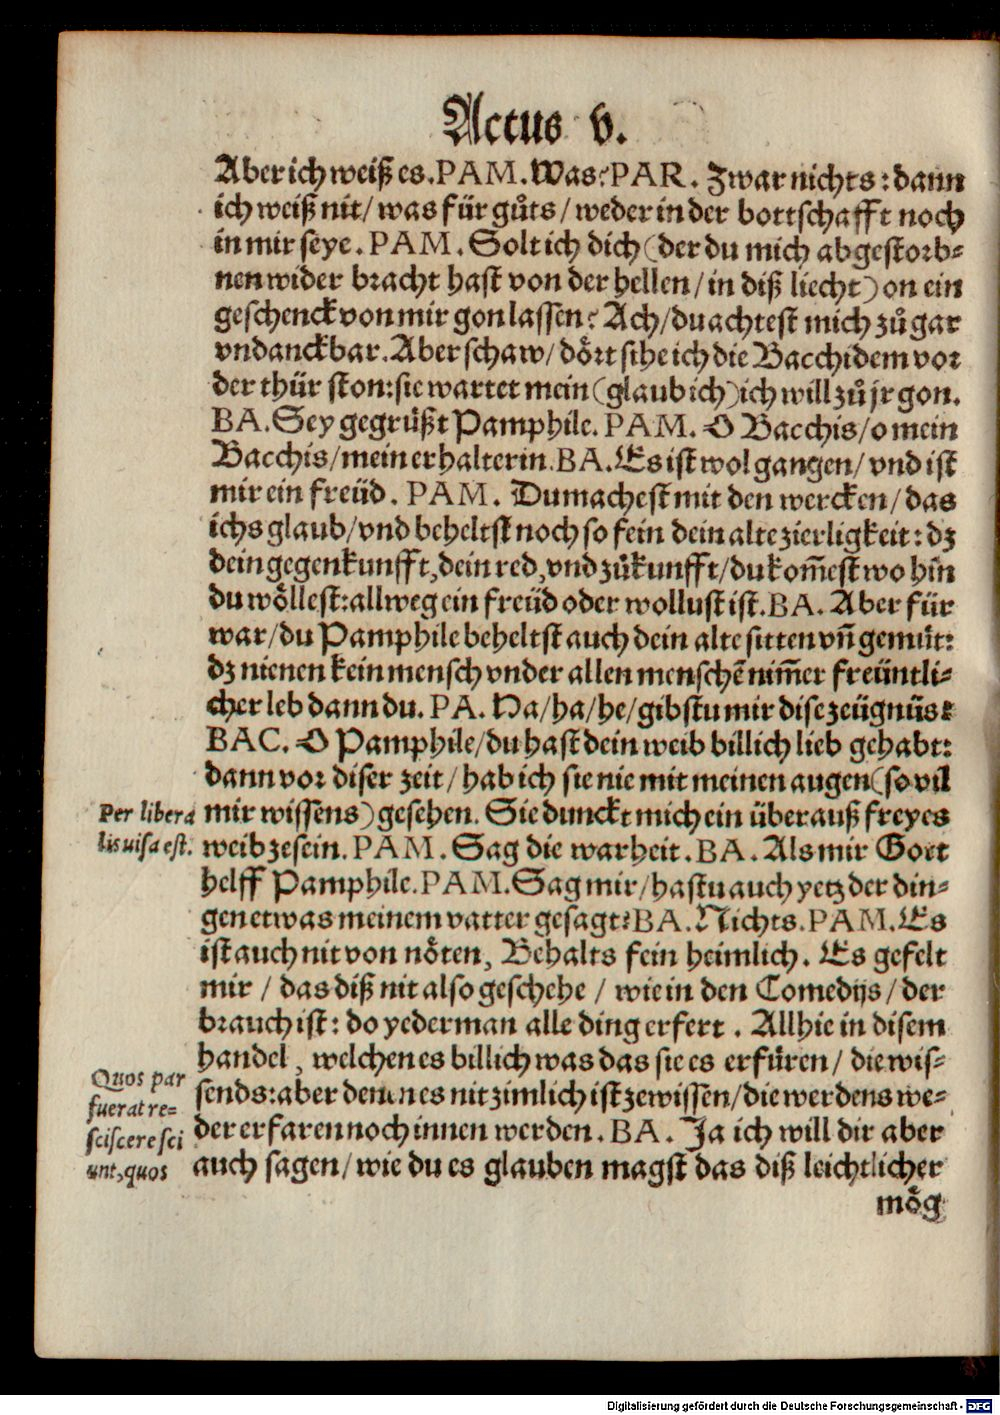 Actus v.
Aber ich weiß es. PAM. Was? PAR. Zwar nichts: dann
ich weiß nit / was für gůts / weder in der bottschafft noch
in mir seye. PAM. Solt ich dich (der du mich abgestorb⸗
nen wider bracht hast von der hellen / in diß liecht) on ein
geschenck von mir gon lassen? Ach / du achtest mich zů gar
vndanckbar. Aber schaw / dǒrt sihe ich die Bacchidem vor
der thür ston: sie wartet mein (glaub ich) ich will zů jr gon.
BA. Sey gegrüßt Pamphile. PAM. O Bacchis / o mein
Bacchis / mein erhalterin. BA. Es ist wol gangen / vnd ist
mir ein freüd. PAM. Du machest mit den wercken / das
ichs glaub / vnd beheltst noch so fein dein alte zierligkeit: dz
dein gegenkunfft, dein red, vnd zůkunfft / du kom̄est wo hin
du wöllest: allweg ein freüd oder wollust ist. BA. Aber für
war / du Pamphile beheltst auch dein alte sitten vn̄ gemüt:
dz nienen kein mensch vnder allen menschē nim̄er freüntli⸗
cher leb dann du. PA. Ha / ha / he / gibstu mir dise zeügnüs?
BAC. O Pamphile / du hast dein weib billich lieb gehabt:
dann vor diser zeit / hab ich sie nie mit meinen augen (so vil
Per libera
mir wissens) gesehen. Sie dunckt mich ein überauß freyes
lis uisa est.
weib zesein. PAM. Sag die warheit. BA. Als mir Gott
helff Pamphile. PAM. Sag mir / hastu auch yetz der din⸗
gen etwas meinem vatter gesagt? BA. Nichts. PAM. Es
ist auch nit von nöten, Behalts fein heimlich. Es gefelt
mir / das diß nit also geschehe / wie in den Comedijs / der
brauch ist: do yederman alle ding erfert. Allhie in disem
handel, welchen es billich was das sie es erfüren / die wis⸗
Quos par
fuerat re=
sends: aber denen es nit zimlich ist zewissen / die werdens we⸗
sciscere sci
der erfaren noch innen werden. BA. Ja ich will dir aber
unt, quos
auch sagen / wie du es glauben magst das diß leichtlicher
mög
Digitalisierung gefördert durch die Deutsche Forschungsgemeinschaft - DFG